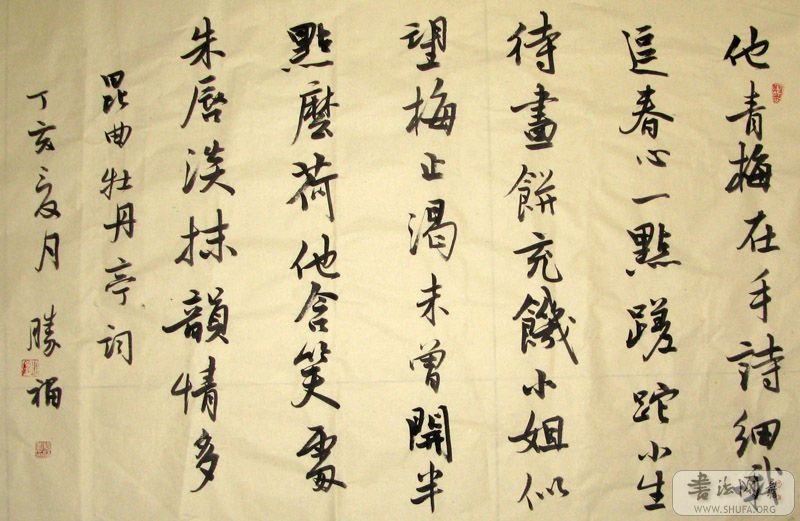 他青梅在手詩細哦
逗春心一點蹉跎小生
待畫餅充饑小姐似
望梅止渴未曾開半
點麼荷他含笑處
朱唇淡抹韻情多
昆曲牡丹亭詞
丁亥夏月 勝福
書法网
WWW.SHUFA.ORG